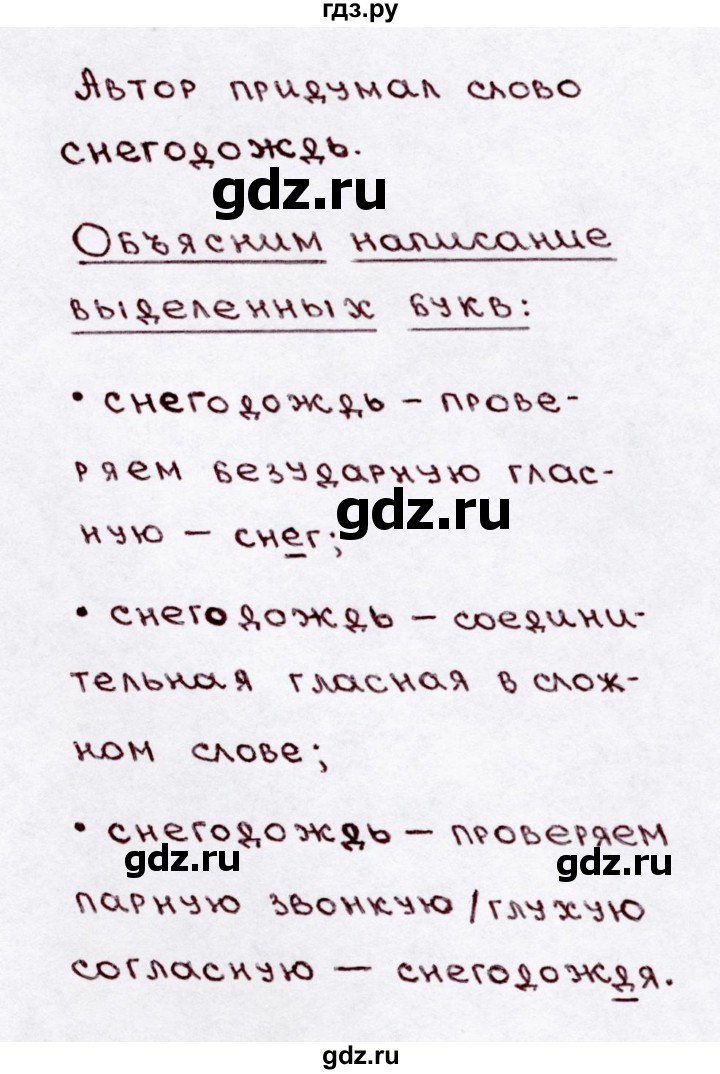 гдз.ру
Автор придумал слово
снегодождь.
gdz.ru
Объясним написание
выделенных букв:
• снегодождь – прове-
ряем безударную глас-
gdz.ru
ную – снег;
• снегодождь – соедини-
тельная гласная в слож-
ном слове;
• снегодождь – проверяем
gdz.ru
gdz.ru
парную звонкую/глухую
согласную – снегодождя.
gdz.ru